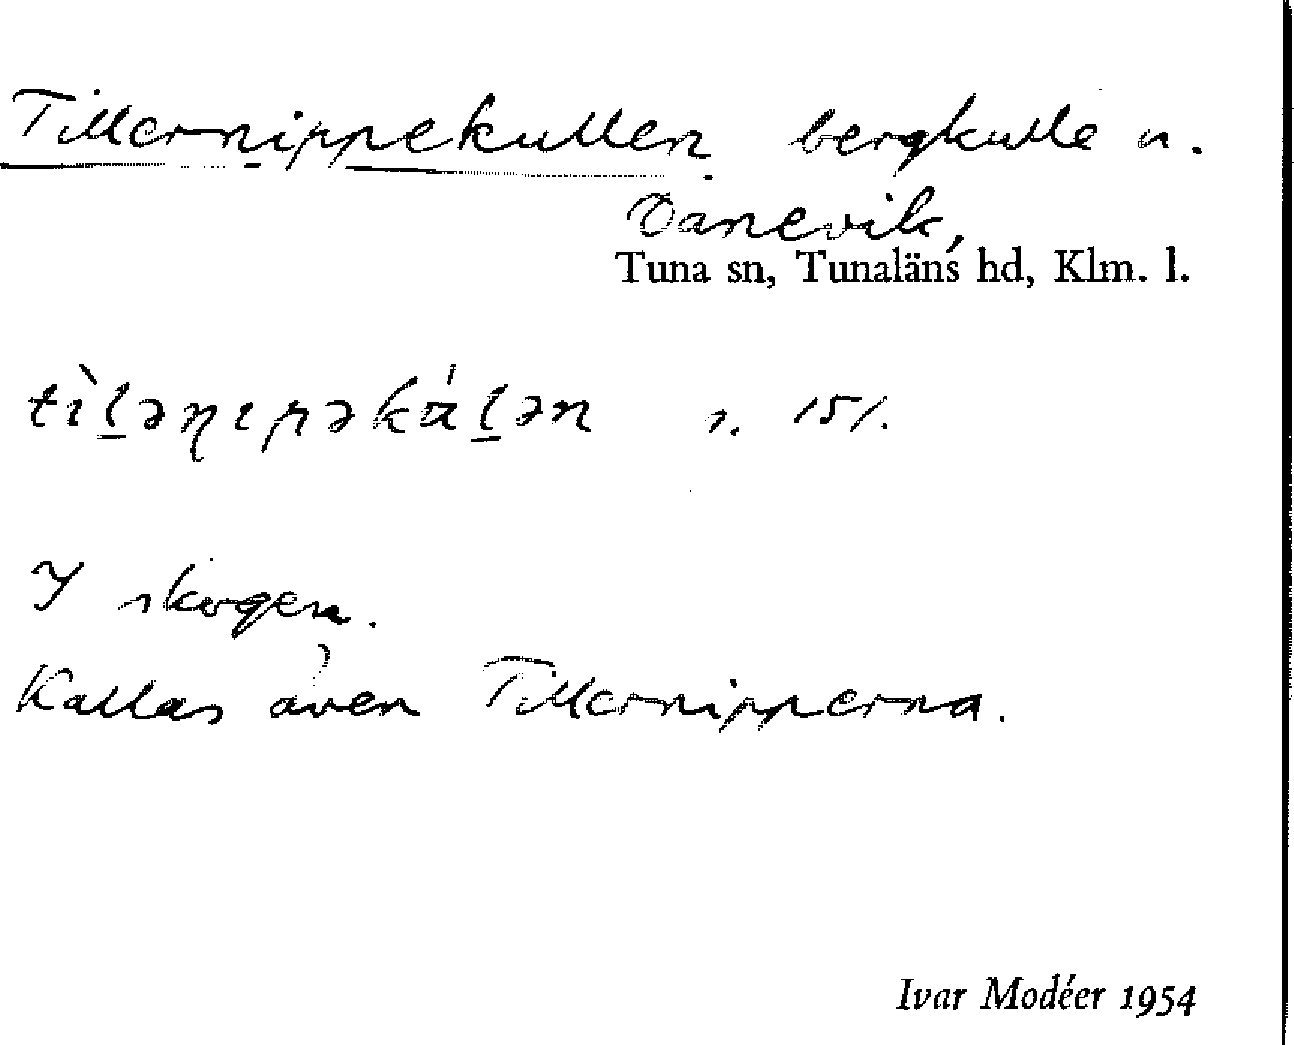 Tillernippekullen bergkulle n.
Danevik,
Tuna sn, Tunaläns hd, Klm. l.
tɩ̀l̠əɳɩpəkɑ́l̠ən s. 151.
I skogen.
Kallas även Tillernipperna.
Ivar Modéer 1954